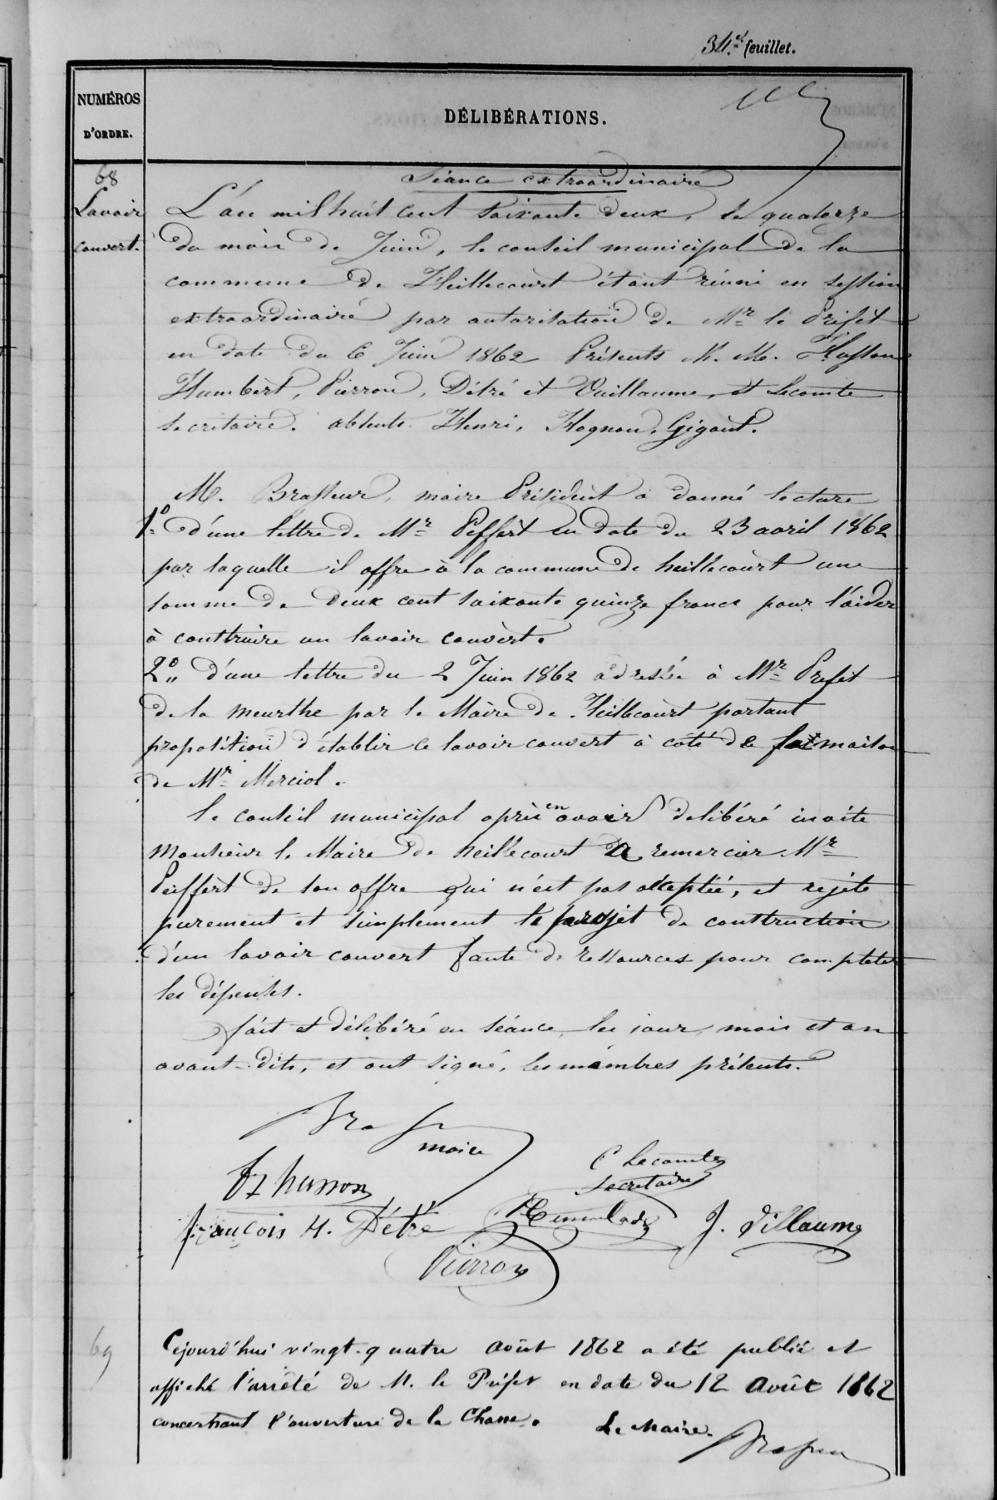 34.e feuillet.
NUMÉROS
D'ORDRE.
DÉLIBÉRATIONS.
68
Lavoir
couvert.
Séance extraordinaire
L'an mil huit cent soixante deux, le quatorze
du mois de Juin, le conseil municipal de la
commune de Heillecourt étant réuni en session
extraordinaire par autorisation de Mr le Préfet
en date du 6 Juin 1862 Présents M. M. Husson
Humbert, Pierron, Détré et Vuillaume, et Lecomte
secrétaire. absents Henri, Hognon, Gigout.
M. Brasseur, maire Président a donné lecture
1° d'une lettre de Mr Peiffert en date du 23 avril 1862
par laquelle il offre à la commune de heillecourt une
somme de deux cent soixante quinze francs pour l'aider
à construire un lavoir couvert.
2° d'une lettre du 2 Juin 1862 adressée à Mr Prefet
de la meurthe par le Maire de Heillecourt portant
proposition d'établir ce lavoir couvert à côté de la maison
de Mr Merciol.
le conseil municipal après en avoir délibéré invite
Monsieur le Maire de heillecourt à remercier Mr
Peiffert de son offre qui n'est pas acceptée, et rejète
purement et simplement le projet de construction
d'un lavoir couvert faute de ressources pour completer
les dépenses.
fait et délibéré en séance, les jour, mois et an
avant-dits, et ont signé, les membres présents.
maire
C Lecomte
Secretaire
Fz husson
françois H. Détré
J. Villaume
Pierron
69
Cejourd'hui vingt-quatre août 1862 a été publié et
affiché l'arrêté de M. le Préfet en date du 12 Août 1862
concernant l'ouverture de la Chasse.
Le Maire.